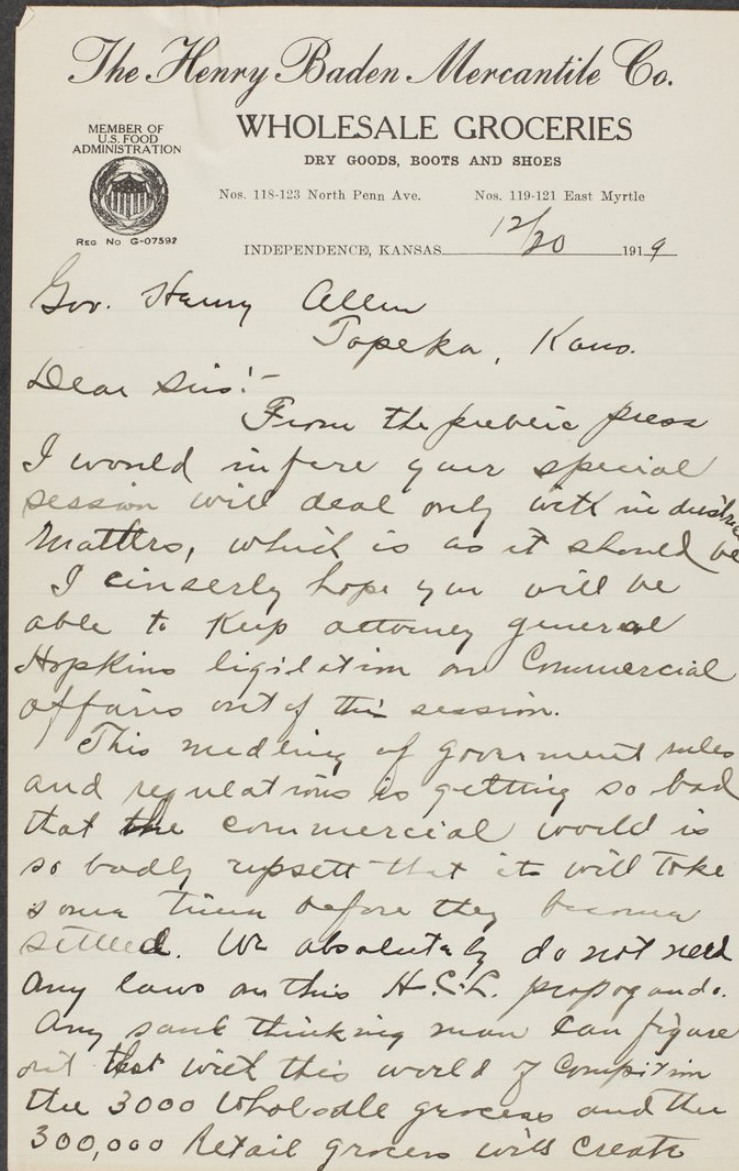 The Henry Baden Mercantile Co.
MEMBER OF
U.S. FOOD
ADMINISTRATION
WHOLESALE GROCERIES
DRY GOODS, BOOTS AND SHOES
Nos. 118-123 North Penn Ave. Nos. 119-121 East Myrtle
REG No G-07592
INDEPENDENCE, KANSAS 12/20 1919
Gov. Henry Allen
Topeka, Kans.
Dear Sir:-
From the public press
I would infere your special
session will deal only with industrial
Matters, which is as it should be
I cinserly hope you will be
able to Keep attorney general
Hopkins ligilation on Commercial
affairs out of this session.
This medling of goverment rules
and regulations is getting so bad
that the commercial world is
so badly upsett that it will take
some time before they become
settled. We absolutely do not need
any laws on this H.C.L. propoganda.
Any sane thinking man can figure
out that with this world of compition
the 3000 Wholesale grocers and the
300,000 Retail grocers will create